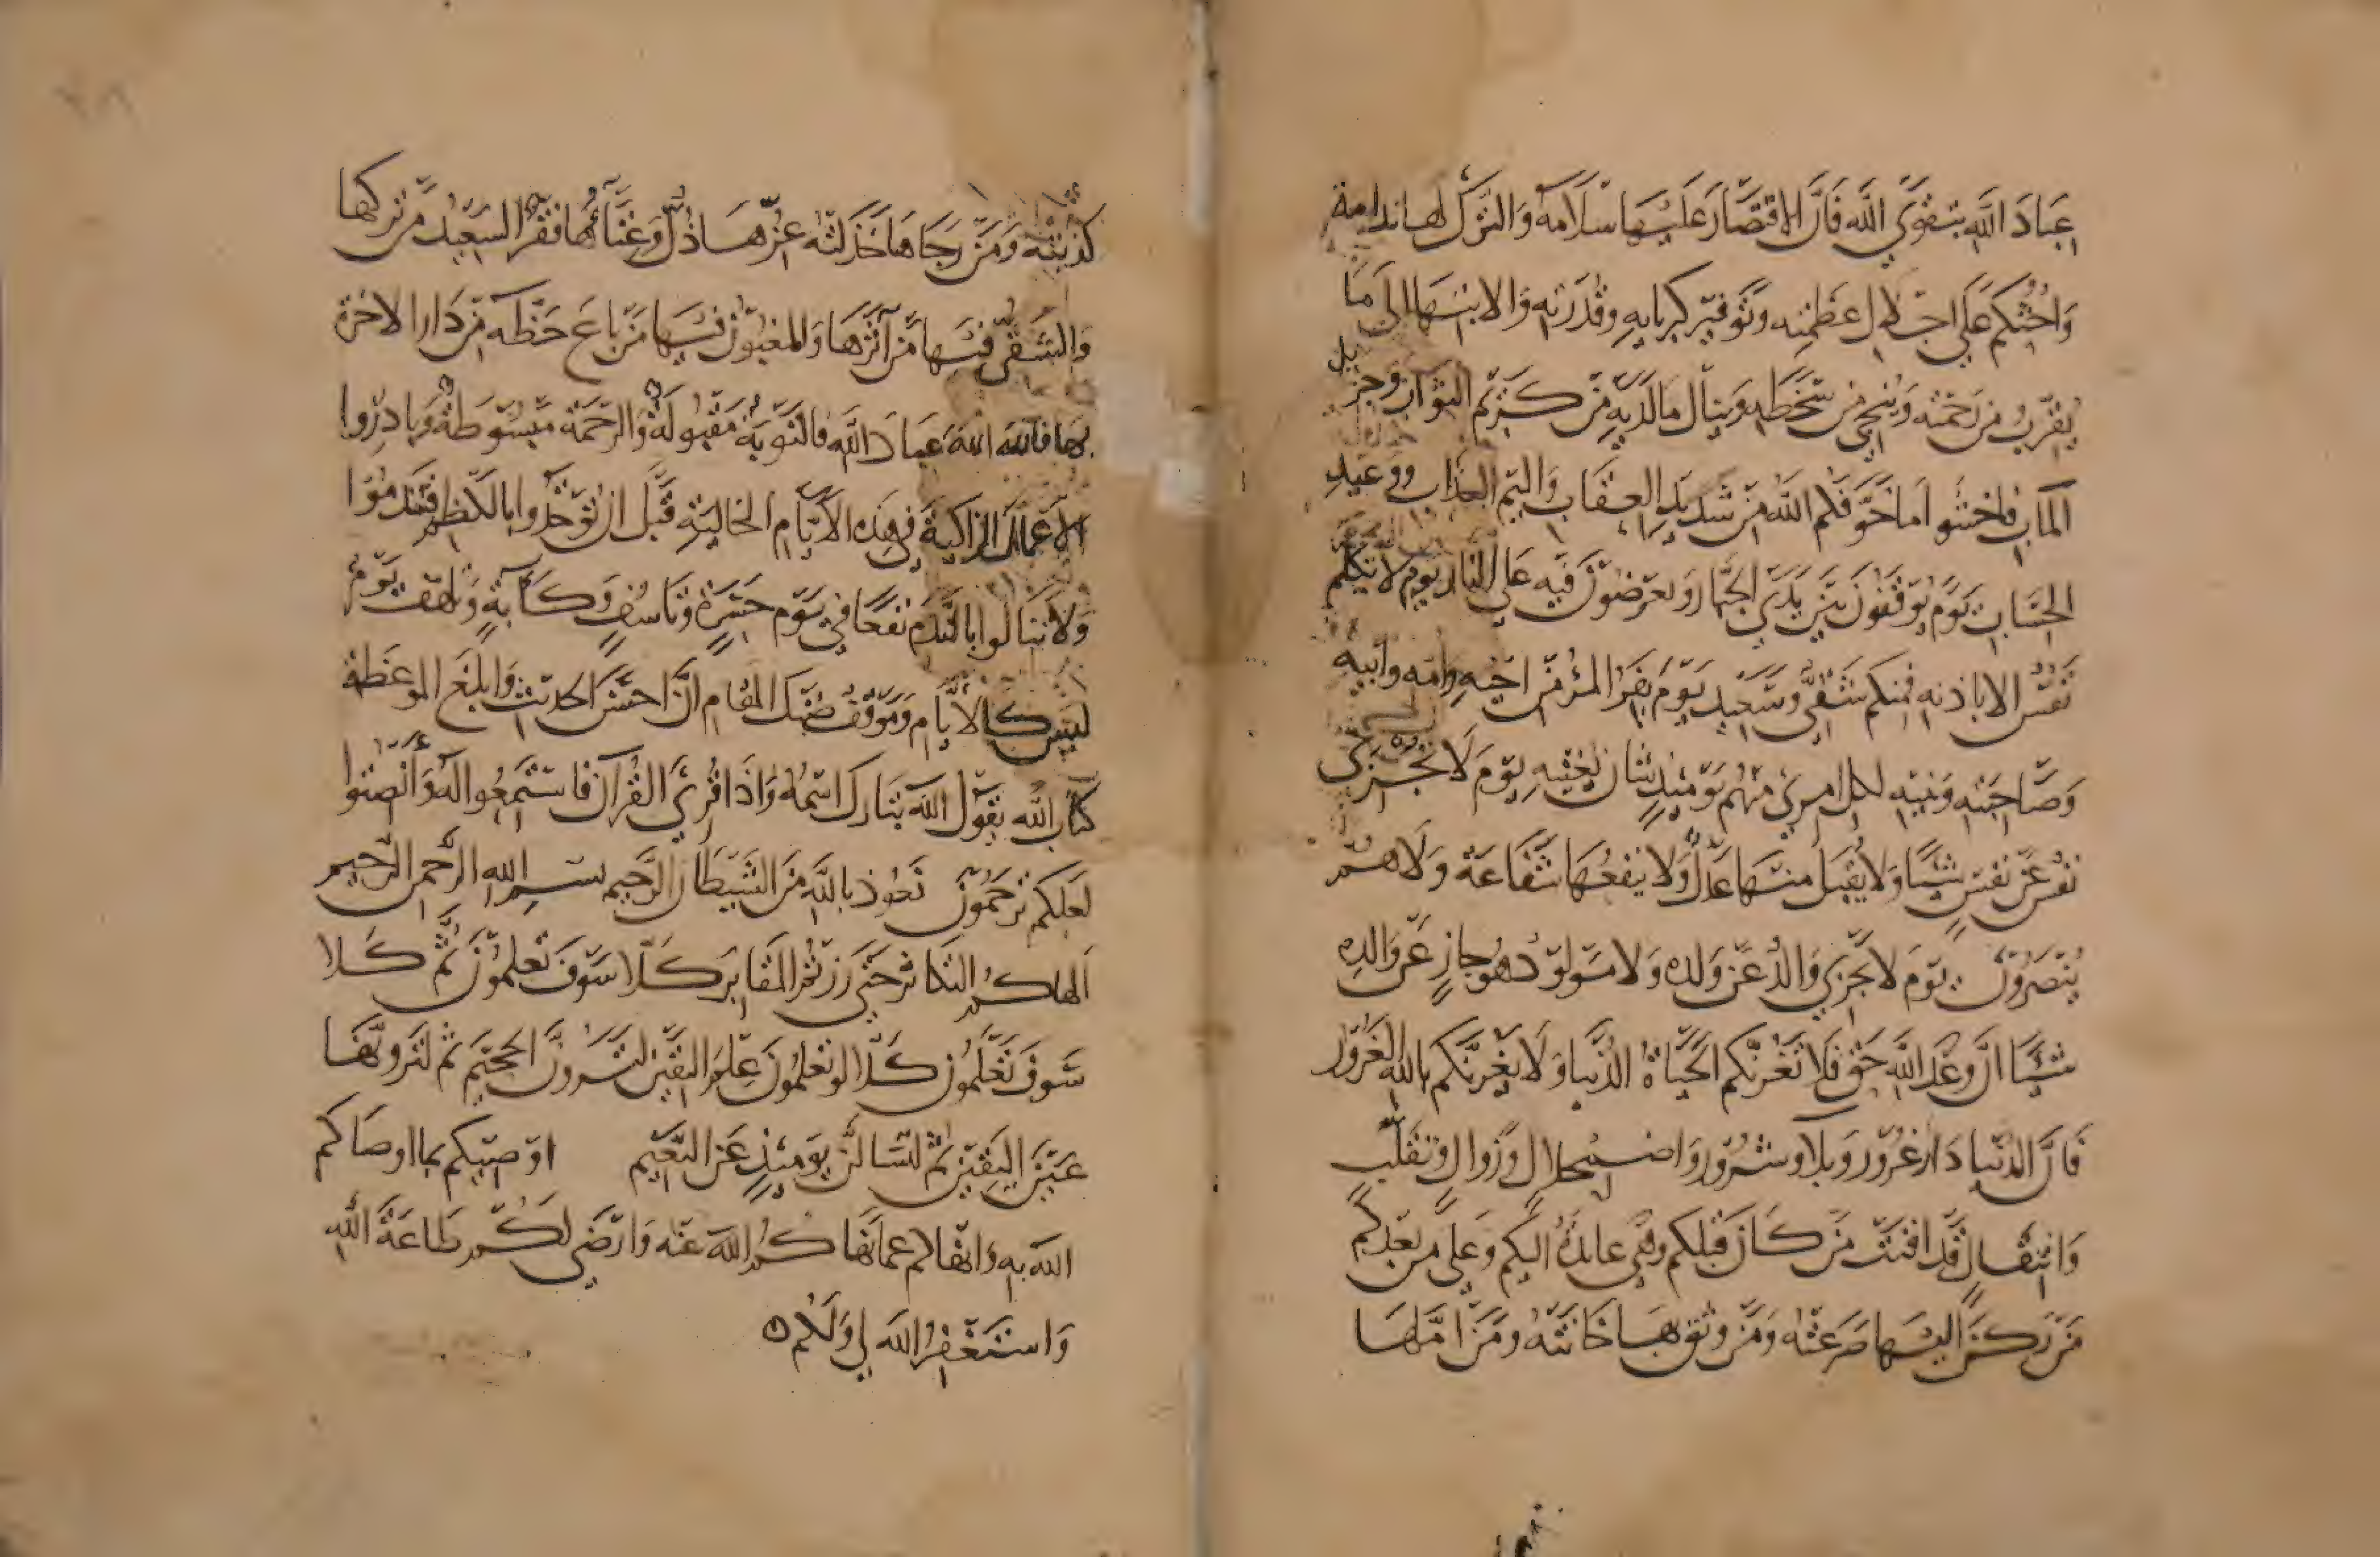 عِبَادَ اللَّهِ بِتَقْوَي اللَّهِ فَاِنَّ الاقتصَارَ عَلَيْهَا سَلَامَة وَالتَّرْكَ لهَا ندامة
وَاَحُثُّكُمْ عَلَي اجلالِ عَظَمتِهِ وَتَوقيرِ كبريايهِ وقُدْرَتِهِ وَالانتهَا الى مَا
يُقَرِّبُ مِن رَحمَتِه وَيُنجي من سَخَطِهِ وَينَالُ مَا لَدَيهِ مِن كَرِيم الثوَابِ وجزيل
المآبِ فاخشَوا مَا خَوَّفَكم اللَّهُ مِن شَدِيدِ العِقَابِ وَاليمِ العذَابِ ووعيدِ
الحسَابِ يَوْمَ تُوقَفُونَ بَيْنَ يَدَيِ الجبَّارِ وَتعرَضُونَ فيهِ عَلي النَّارِ يوم لا تكلم
نَفْسٌ الا باذنهِ فمنكم شَقِيٌّ وسَعيد يَوْمَ يَفِرُّ المرْءُ مِن اخيهِ وامه وابيه
وَصَاحِبَتِهِ وَبَنيهِ لكل امرِئٍ منهُم يَوْمَئِذٍ شَانٌ يُغنيهِ يَوْمَ لَا تجزي
نَفسٌ عَن نفسٍ شَيْـًٔا وَلَا يُقبَلُ منهَا عَدلٌ وَّلا يَنفَعُهَا شَفَاعَةٌ وَلَا هُمْ
يُنصَرُونَ يَوْمَ لا يَجْزِي وَالدٌ عَن وَلَدِه وَلا مَولُودٌ هو جازٍ عَن وَالدِه
شَيْـًٔا اِنَّ وعْدَ اللَّهِ حَق فَلَا تَغُرَّنَّكم الحَيَاةُ الدُّنيا وَلَا يَغُرَّنَّكم بالله الغَرُور
فَاِنَّ الدُّنيَا دَارُ غُرُورٍ وَبَلا وشُرُورٍ وَاضمحلالٍ وَزَوالٍ وَتقَلُّبٍ
وَانتِقَالٍ قَد افنَتْ مَن كَانَ قَبلَكم وهي عائدةٌ اليكم وعَلي مَن بَعدَكم
مَن رَكَنَ اليهَا صَرَعَتْهُ وَمَن وَثِقَ بهَا خَانَتْهُ وَمَن امَّلهَا
كَذَبَتْهُ وَمَن رَجَاهَا خَذَلَتْهُ عِزُّهَا ذُلٌّ وَغِنَاؤُهَا فَقرٌ السَعِيدُ مَن تركهَا
وَالشَقِيُّ فيهَا مَن آثَرَهَا وَالمغبُونُ فيهَا مَن بَاعَ حَظَّهُ مِن دَارِ الاخرَة
بهَا فاللهَ اللهَ عبَادَ اللَّهِ فالتَّوبَةُ مَقبُولَةٌ وَالرَّحمَةُ مَبسُوطَةٌ وَبَادِرُوا
الاعمال الزاكيَةَ في هذه الايَّامِ الخاليَةِ قَبلَ ان تُوخَذُوا بالكَظم فتندمُوا
وَلَا تنَالُوا بالندم نفعًا في يَوْم حَسْرَةٍ وتَاسُفٍ وَكَآبَةٍ وتلهف يَوْمٌ
ليسَ كالاَيَّام وَمَوقفٌ ضنك المقام انَّ احسَنَ الحديث وَابلَغَ الموعظة
كتَاب الله يَقُولُ اللهُ تَبَارَكَ اسْمُهُ وَاذا قُرِئَ القُرآن فاستَمِعُوا لهُ وَاَنصِتُوا
لعَلكم تُرحَمُونَ نَعوذ باللَّهِ مِنَ الشَيطَانِ الرَّجيم بسم الله الرَّحمن الرَّحيم
اَلهاكُمُ التَكَاثُرُ حَتَّي زُرْتُمُ المقَابِرَ كَلَّا سَوْفَ تعلَمُونَ ثُمَّ كَلا
سَوفَ تَعْلَمُونَ كَلَّا لو تعلمُونَ عِلمَ اليَقينِ لتَرَوُنَّ الجحيمَ ثم لترونَّهَا
عَيْنَ اليَقِينِ ثمَّ لتُسَالُنَّ يَومَئِذٍ عَن النَّعِيم اوصيكم بما اوصَاكم
اللهُ بهِ وَانهَاكم عمَا نهَاكُمُ اللهُ عَنْهُ وَارْضَي لَكُم طَاعَةَ اللهِ
وَاستَغفِرُ اللهَ لي وَلَكُم